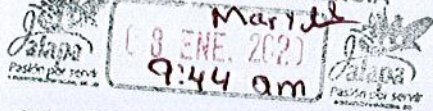 Jalapa
Pasión por servir
08 ENE. 2020
9:44 am
Jalapa
Pasión por servir